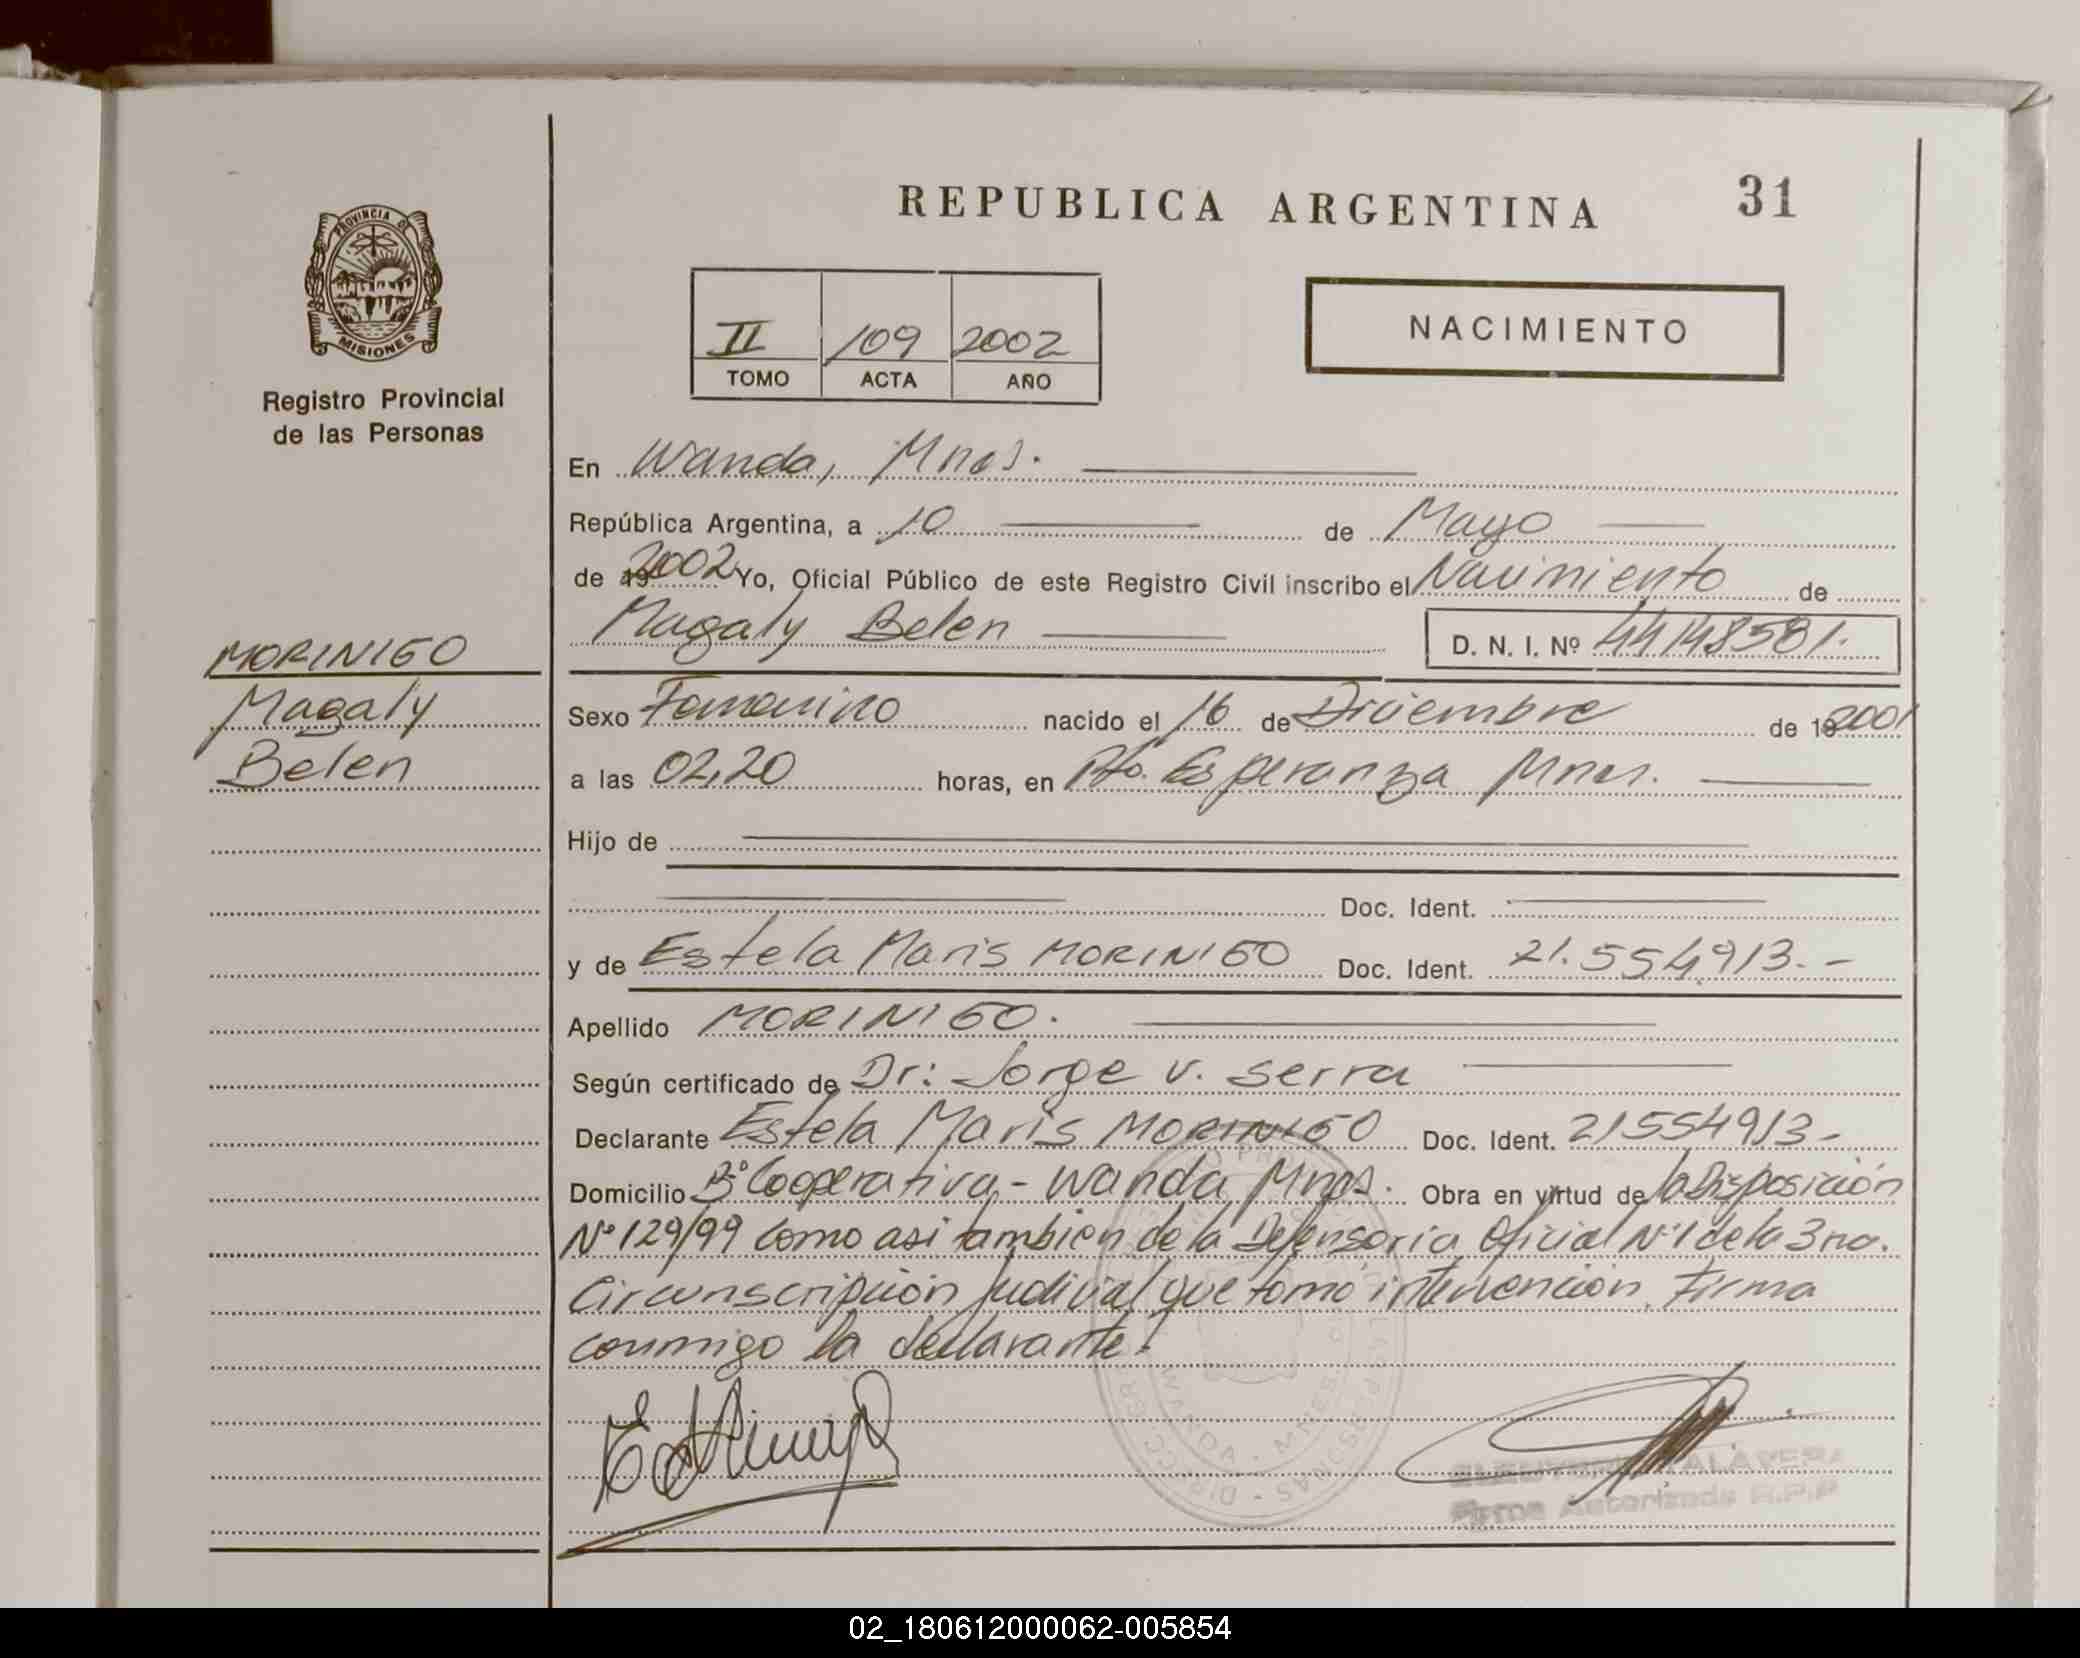 REPUBLICA ARGENTINA 31
PROVINCIA DE
MISIONES
Registro Provincial
de las Personas
II 109 2002
TOMO ACTA AÑO
NACIMIENTO
En Wanda, Mnes.
República Argentina, a 10 de Mayo
de 19 2002 Yo, Oficial Público de este Registro Civil inscribo el Nacimiento de
Magaly Belen D. N. I. Nº 44148581.
MORINIGO
Magaly
Belen
Sexo Femenino nacido el 16 de Diciembre de 19 2001
a las 02,20 horas, en Pto. Esperanza Mnes.
Hijo de
Doc. Ident.
y de Estela Maris MORINIGO Doc. Ident. 21.554.913.-
Apellido MORINIGO.
Según certificado de Dr: Jorge V. Serra
Declarante Estela Maris MORINIGO Doc. Ident. 21554913-
Domicilio Bº Cooperativa - Wanda Mnes. Obra en virtud de la Disposición
Nº 129/99 como asi tambien de la Defensoria Oficial Nº 1 de la 3ra.
Circunscripción Judicial que tomó intervención. Firma
conmigo la declarante.
WANDA - MNES.
TALAVERA
Firma Autorizada R.P.P
02_180612000062-005854